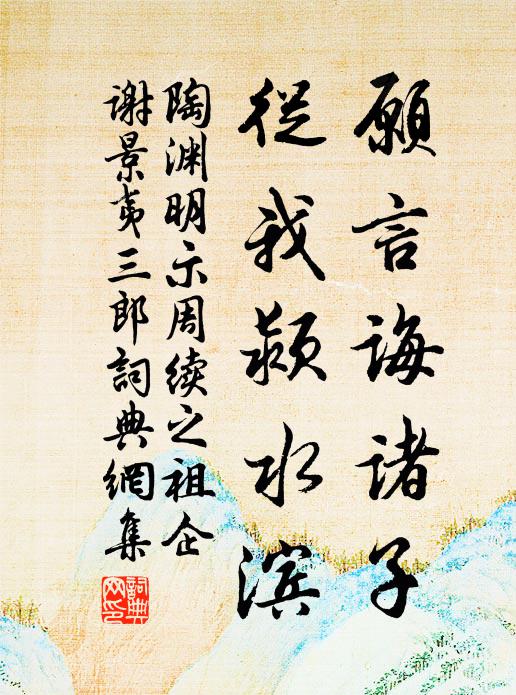 願言誨诸子
從我颍水滨
陶渊明示周续之祖企
谢景夷三郎詞典網集
詞典
网印